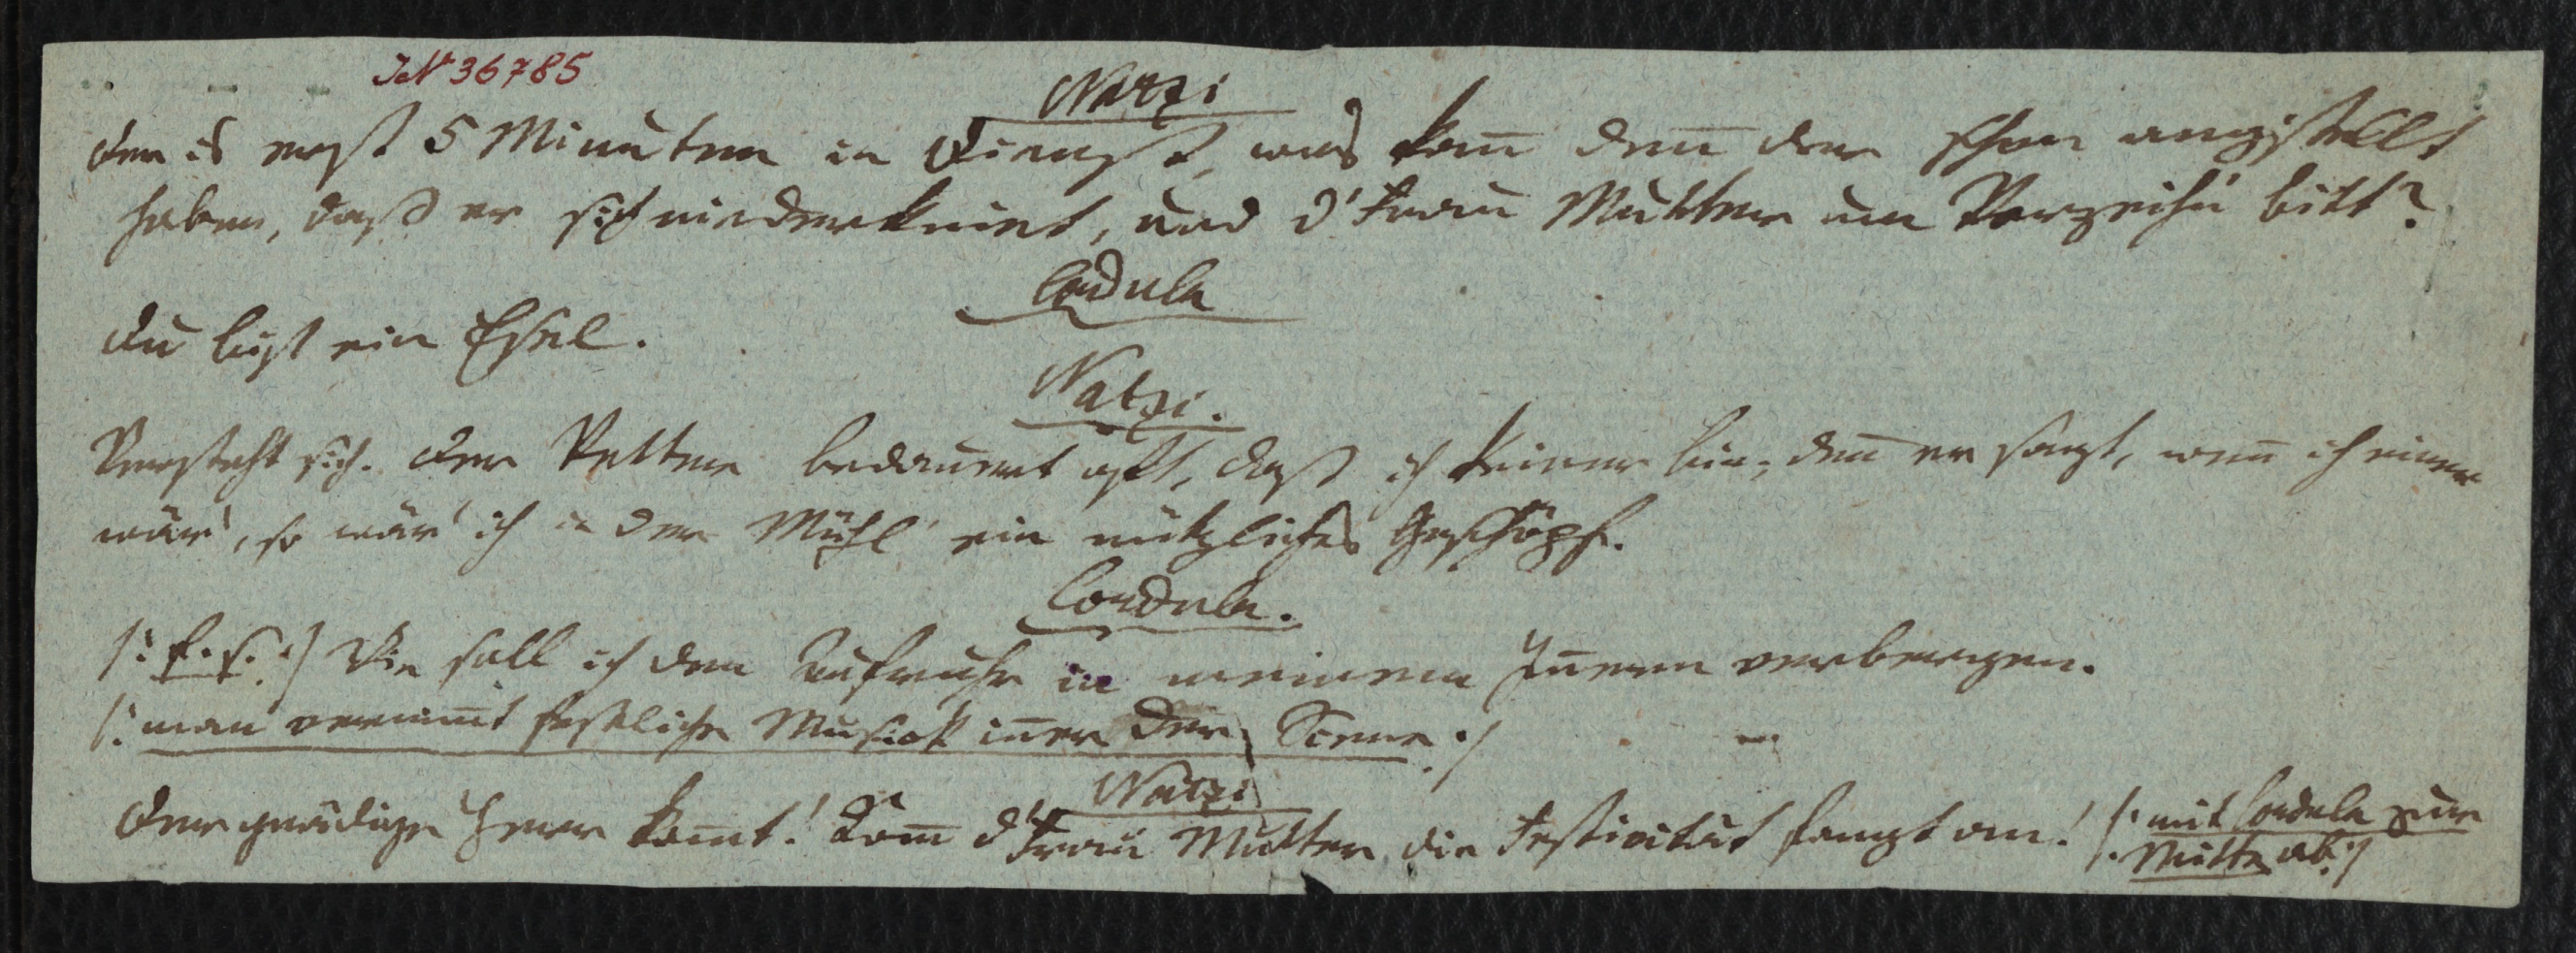 INr 36785
Natzi
Der is erst 5 Minuten in Dienst, was kan̅ den̅ der schon angstellt
haben, daß er sich niederkniet, und d' Frau Mutter um Verzeihn bitt?
Cordula
Du bist ein Esel.
Natzi.
Versteht sich. Der Vetter bedauert oft, daß ich keiner bin, den̅ er sagt, wen̅ ich einer
wär', so wär' ich in der Mühl' ein nützliches Geschöpf.
Cordula.
/: f. s. :/ Wie soll ich den Aufruhr in meinem In̅ern verbergen.
/: man vernim̅t festliche Musick in̅er der Scene :/
Natzi
Der gnädige Herr kom̅t! Kom̅ d' Frau Mutter, die Festivität fangt an! /: mit Cordula zur
/: Mitte ab :/